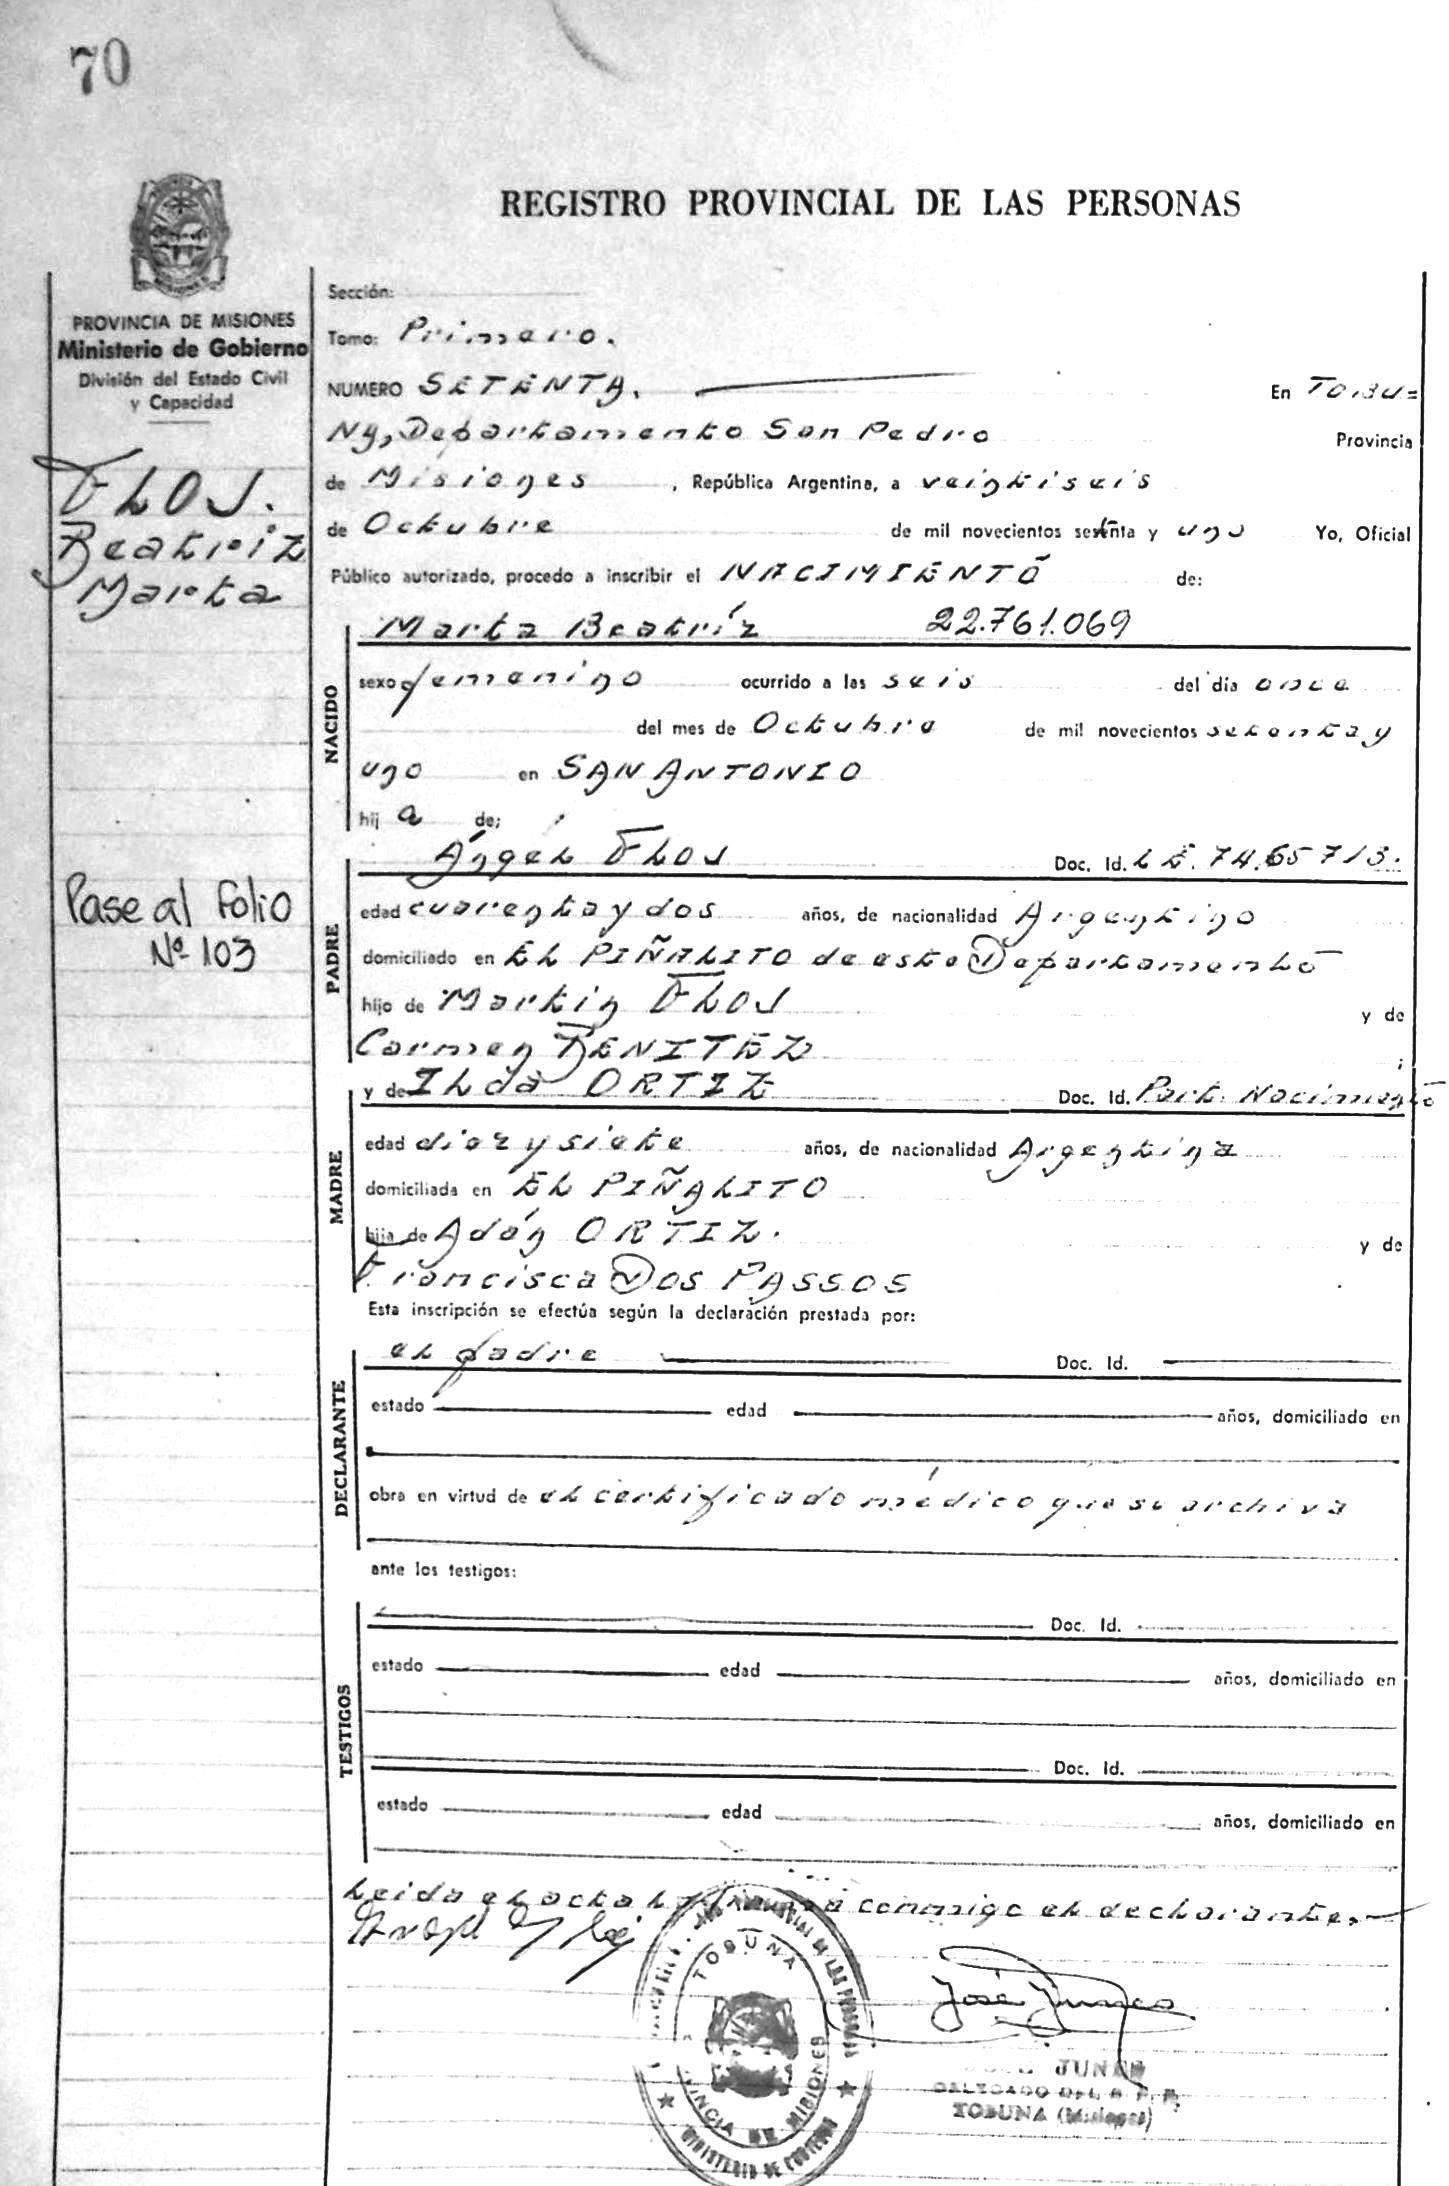 70
REGISTRO PROVINCIAL DE LAS PERSONAS
PROVINCIA DE MISIONES
Ministerio de Gobierno
División del Estado Civil
y Capacidad
FLOS.
Beatriz
Marta
Pase al Folio
Nº 103
Sección:
Tomo: Primero.
NUMERO SETENTA. En TOBU=
NA, Departamento San Pedro Provincia
de Misiones, República Argentina, a veintiseis
de Octubre de mil novecientos setenta y uno Yo, Oficial
Público autorizado, procedo a inscribir el NACIMIENTO de:
Marta Beatríz 22.761.069
NACIDO
sexo femenino ocurrido a las seis del día once
del mes de Octubre de mil novecientos setenta y
uno en SAN ANTONIO
hij a de;
PADRE
Ángel FLOS Doc. Id. L E. 74.65713.
edad cuarenta y dos años, de nacionalidad Argentino
domiciliado en EL PIÑALITO de este Departamento
hijo de Martin FLOS y de
Carmen BENITEZ ;
MADRE
y de Ilda ORTIZ Doc. Id. Part. Nacimiento
edad diez y siete años, de nacionalidad Argentina
domiciliada en EL PIÑALITO
hija de Adán ORTIZ. y de
Francisca DOS PASSOS
Esta inscripción se efectúa según la declaración prestada por:
DECLARANTE
el padre Doc. Id.
estado edad años, domiciliado en
obra en virtud de el certificado médico que se archiva
ante los testigos:
TESTIGOS
Doc. Id.
estado edad años, domiciliado en
Doc. Id.
estado edad años, domiciliado en
Leida el acta la firma conmigo el declarante.
TOBUNA
PROVINCIA DE MISIONES
MINISTERIO DE GOBIERNO
José Junes
DELEGADO DEL R. P. P.
TOBUNA (Misiones)